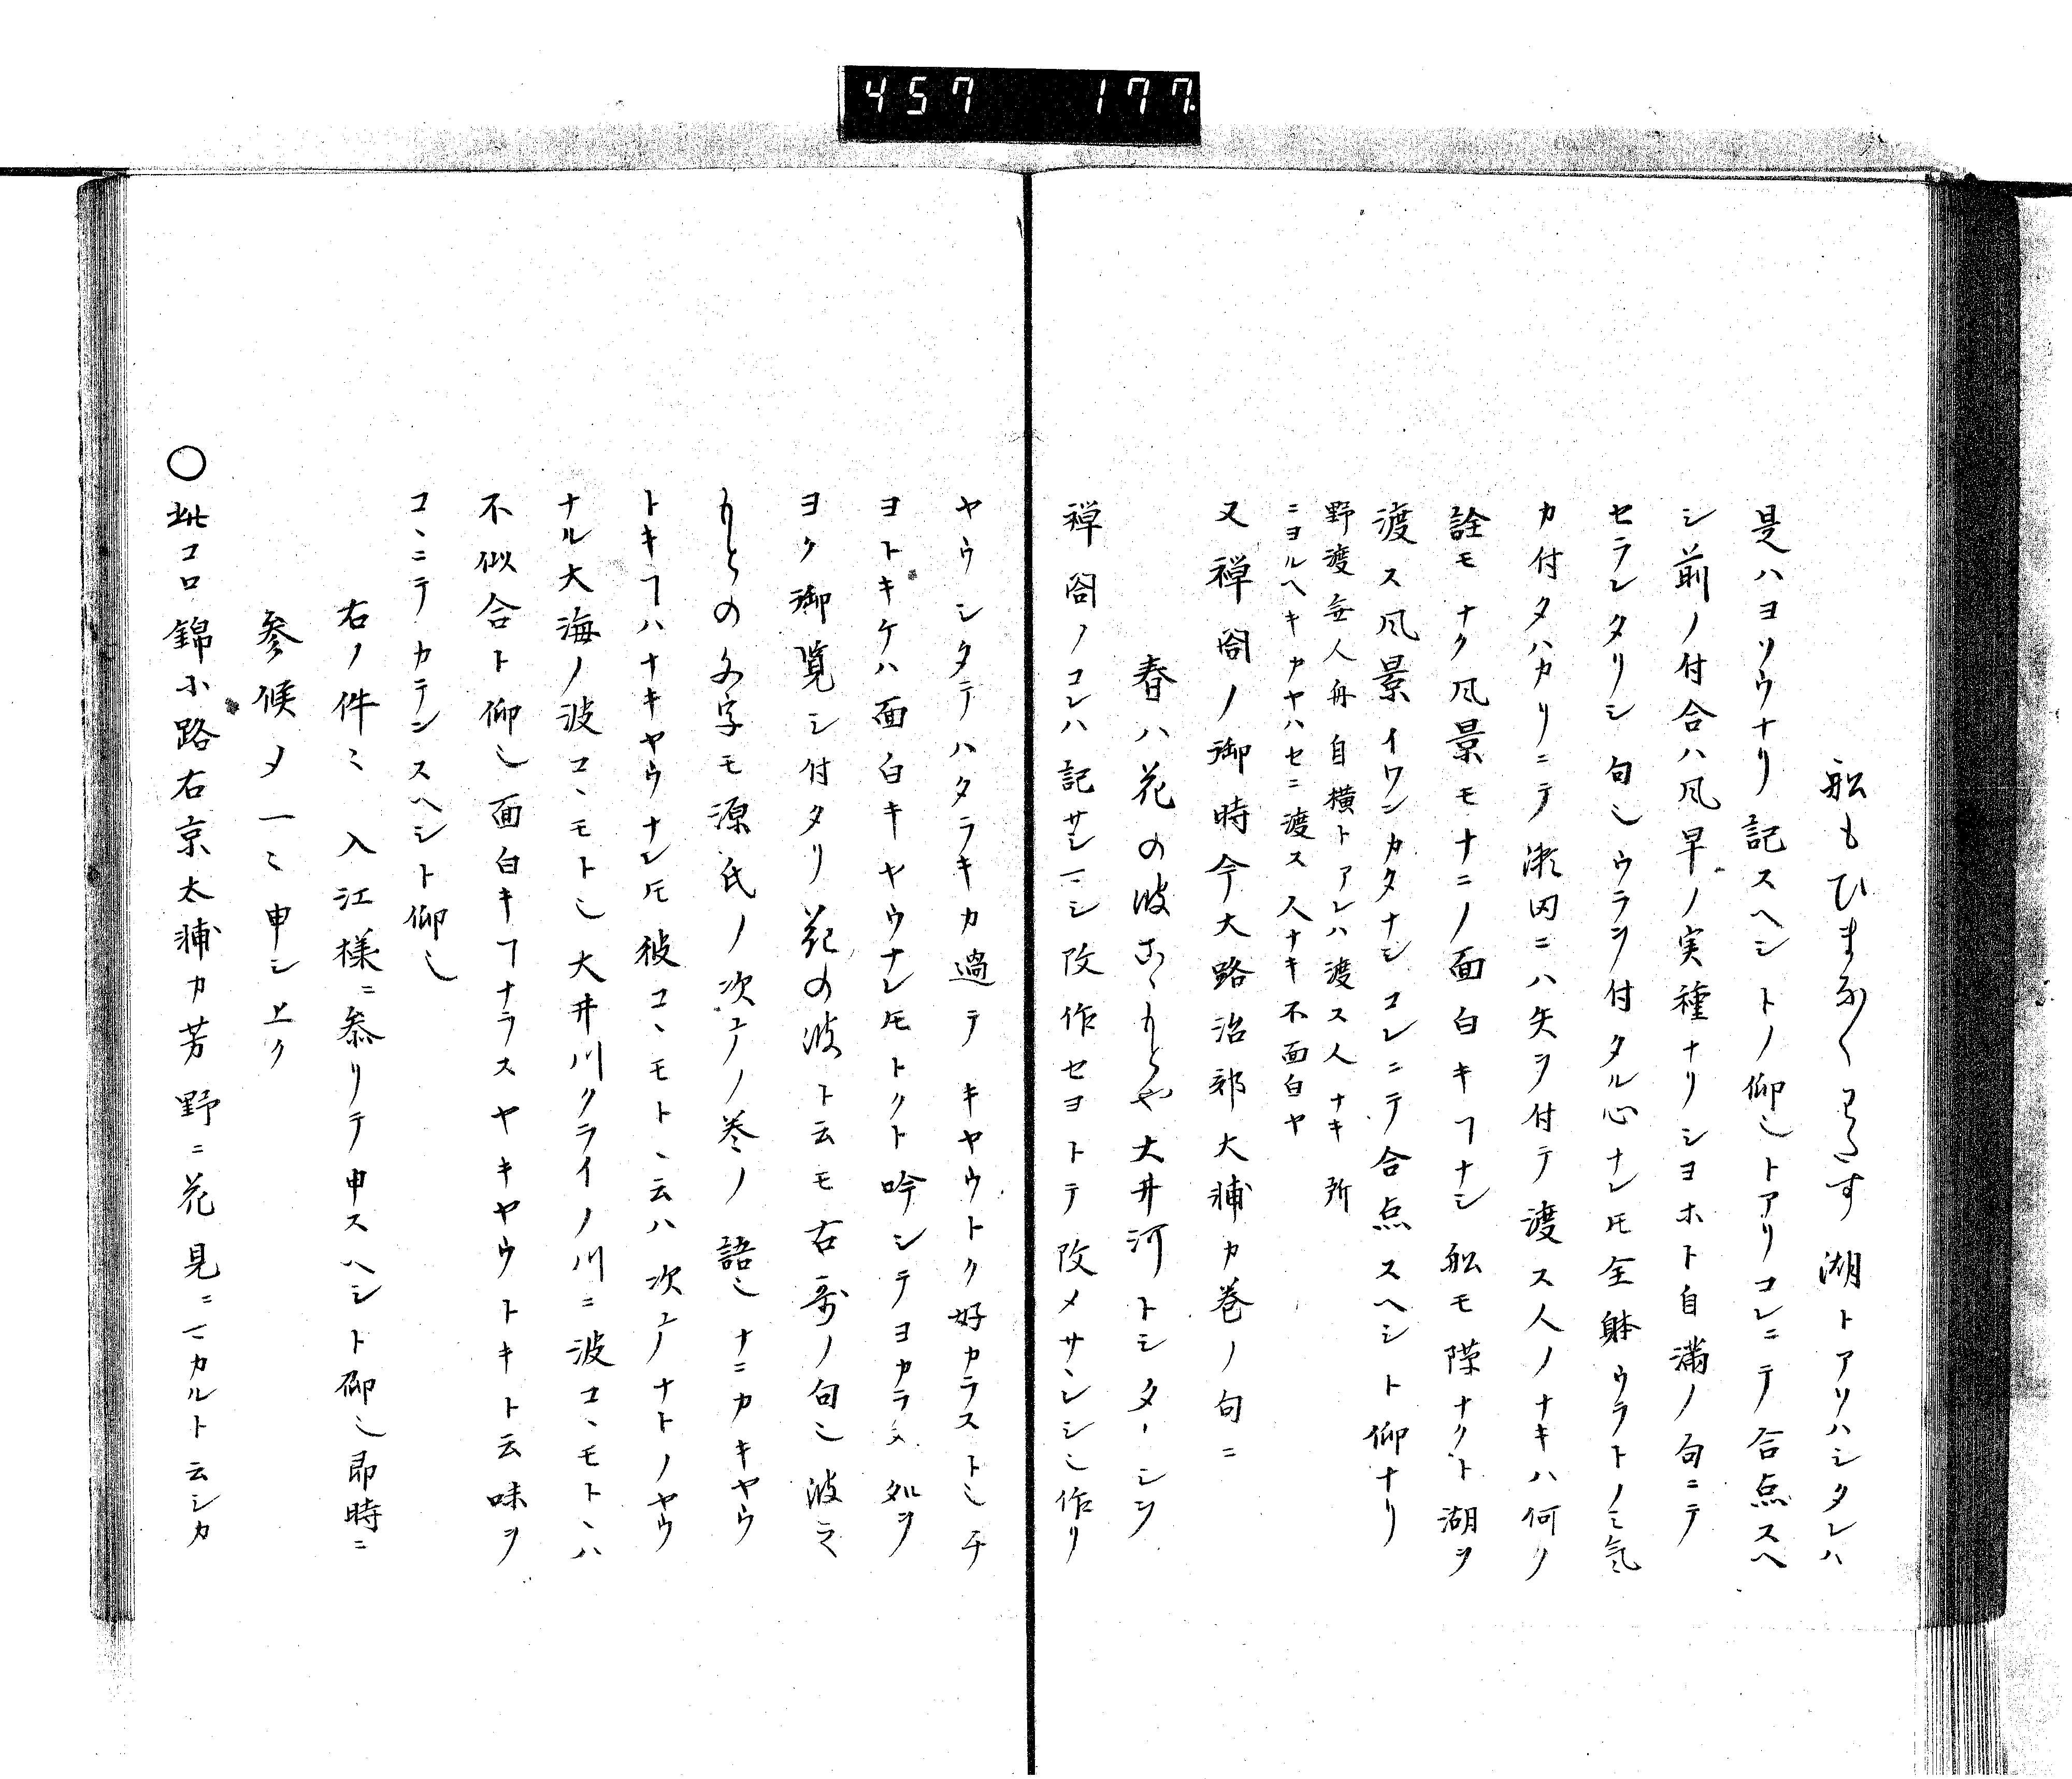 457 177.
船もひまなくわたす湖トアリハシタレハ
是ハヨソウナリ記スヘシトノ仰也トアリコレニテ合点スヘ
シ前ノ付合ハ凡早ノ実種ナリシヨホト自満ノ句ニテ
セラレタリシ句也ウラヲ付タル心ナレ𪜈全躰ウラトノミ気
カ付タハカリニテ瀬田ニハ矢ヲ付テ渡ス人ノナキハ何ノ
詮モナク風景モナニノ面白キヿナシ船モ隙ナクト湖ヲ
渡ス風景イワンカタナシコレニテ合点スヘシト仰ナリ
野渡無人舟自横トアレハ渡ス人ナキ所
ニヨルヘキカヤハセニ渡ス人ナキ不面白ヤ
又禅閤ノ御時今大路治部大輔カ巻ノ句ニ
春ハ花の波こゝもとや大井河トシタヽシヲ
禅閤ノコレハ記サレマシ改作セヨトテ改メサレシ也作リ
ヤウシタテハタラキカ過テキヤウトク好カラストシテ
ヨトキケハ面白キヤウナレ𪜈トクト吟シテヨカラヌ処ヲ
ヨク御覧シ付タリ花の波ト云モ古歌ノ句也波こゝ
もとの文字モ源氏ノ次マノ巻ノ語也ナニカキヤウ
トキヿハナキヤウナレ𪜈彼コヽモトヽ云ハ次マノナトノヤウ
ナル大海ノ波コヽモト也大井川クライノ川ニ波コヽモトヽハ
不似合ト仰也面白キヿナラスヤキヤウトキト云味ヲ
コヽニテカテンスヘシト仰也
右ノ件々入江様ニ参リテ申スヘシト仰也即時ニ
参候メ一々申シ上ク
○此コロ錦小路右京太輔カ芳野ニ花見ニマカルト云シカ